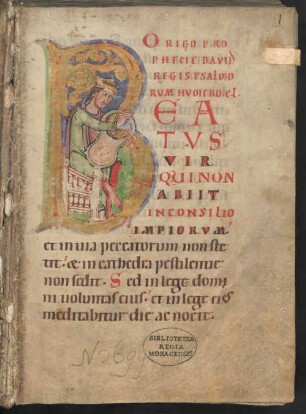 ORIGO PRO
PHECIE DAVID
REGIS PSALMO
RUM NUMERO CL.
BEA
TUS
VIR
QUI NON
ABIIT
IN CONSILIO
IMPIORUM
et in via peccatorum non ste
tit. & in cathedra pestilentie
non sedit. Sed in lege domi
ni voluntas eius. et in lege ei
meditabitur die ac nocte.
BIBLIOTHECA
REGIA
MONACENSIS.